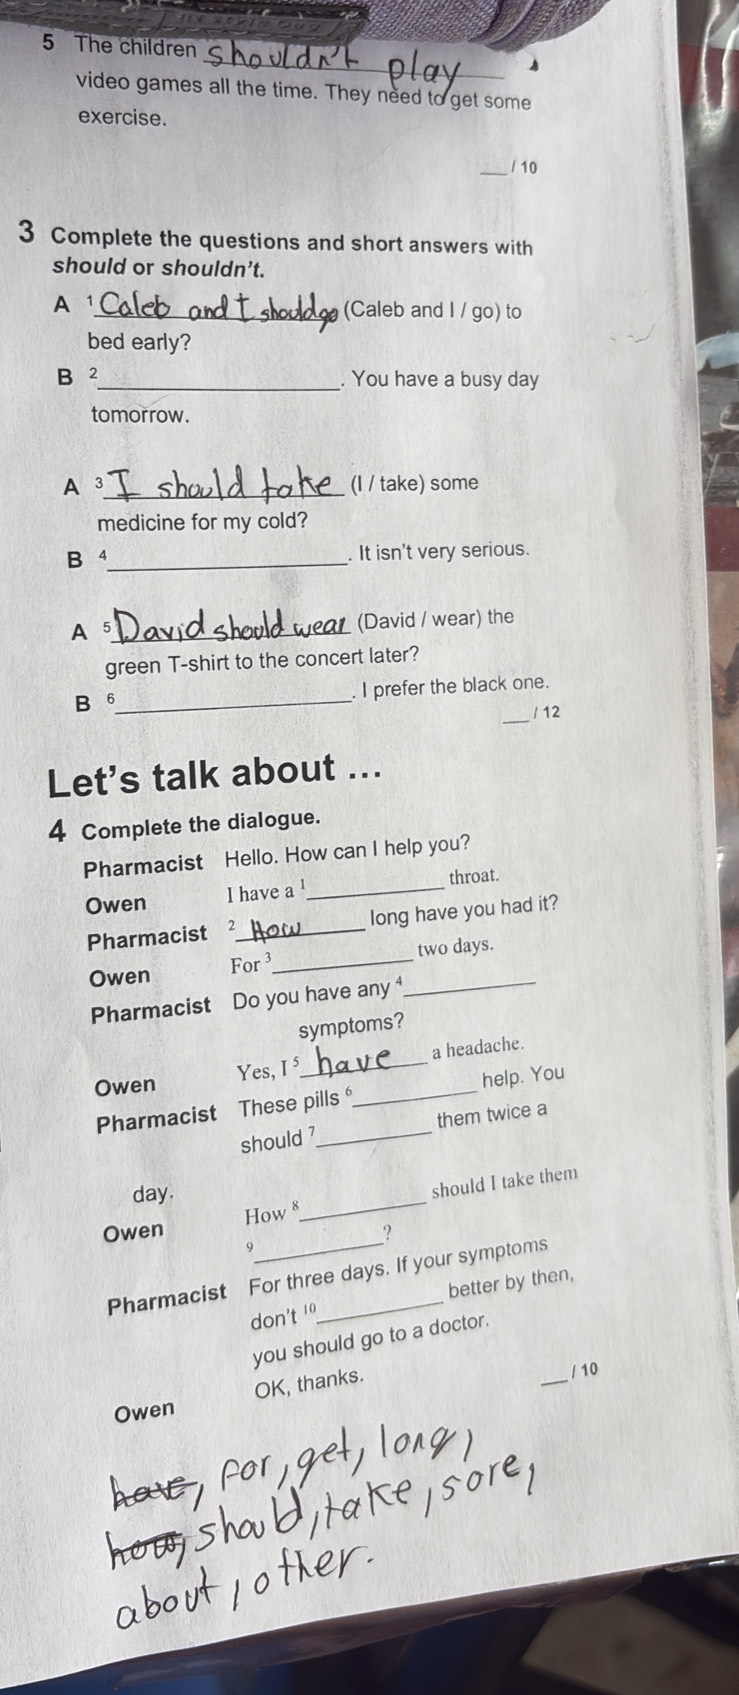 5 The children shouldn't play
video games all the time. They need to get some
exercise.
___ / 10
3 Complete the questions and short answers with
should or shouldn't.
A 1 Caleb and I should go (Caleb and I / go) to
bed early?
B 2 ____________. You have a busy day
tomorrow.
A 3 I should take (I / take) some
medicine for my cold?
B 4 ____________. It isn't very serious.
A 5 David should wear (David / wear) the
green T-shirt to the concert later?
B 6 ____________. I prefer the black one.
___ / 12
Let's talk about ...
4 Complete the dialogue.
Pharmacist Hello. How can I help you?
Owen I have a 1 ____________ throat.
Pharmacist 2 How long have you had it?
Owen For 3 ____________ two days.
Pharmacist Do you have any 4 ____________
symptoms?
Owen Yes, I 5 have a headache.
Pharmacist These pills 6 ____________ help. You
should 7 ____________ them twice a
day.
Owen How 8 ____________ should I take them
9 ____________ ?
Pharmacist For three days. If your symptoms
don't 10 ____________ better by then,
you should go to a doctor.
Owen OK, thanks.
___ / 10
have, for, get, long,
how, should, take, sore,
about, other.